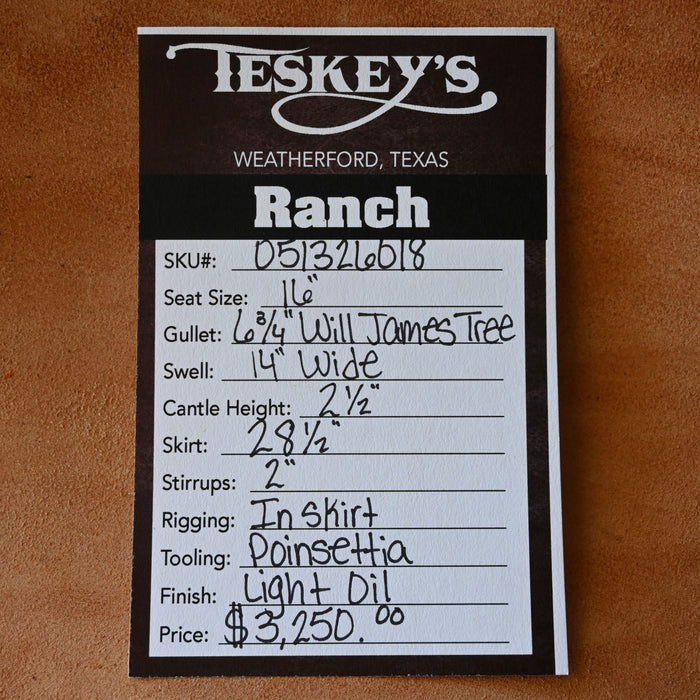 TESKEY'S
WEATHERFORD, TEXAS
Ranch
SKU#: 051326018
Seat Size: 16"
Gullet: 6 3/4" Will James Tree
Swell: 14" Wide
Cantle Height: 2 1/2"
Skirt: 28 1/2"
Stirrups: 2"
Rigging: In skirt
Tooling: Poinsettia
Finish: Light Oil
Price: $3,250.00